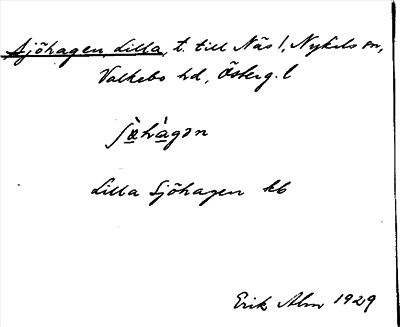 Sjöhagen, Lilla, t. till Näs 1, Nykils sn,
Valkebo hd, Österg. l
Lilla Sjöhagen kb
Erik Alm 1929